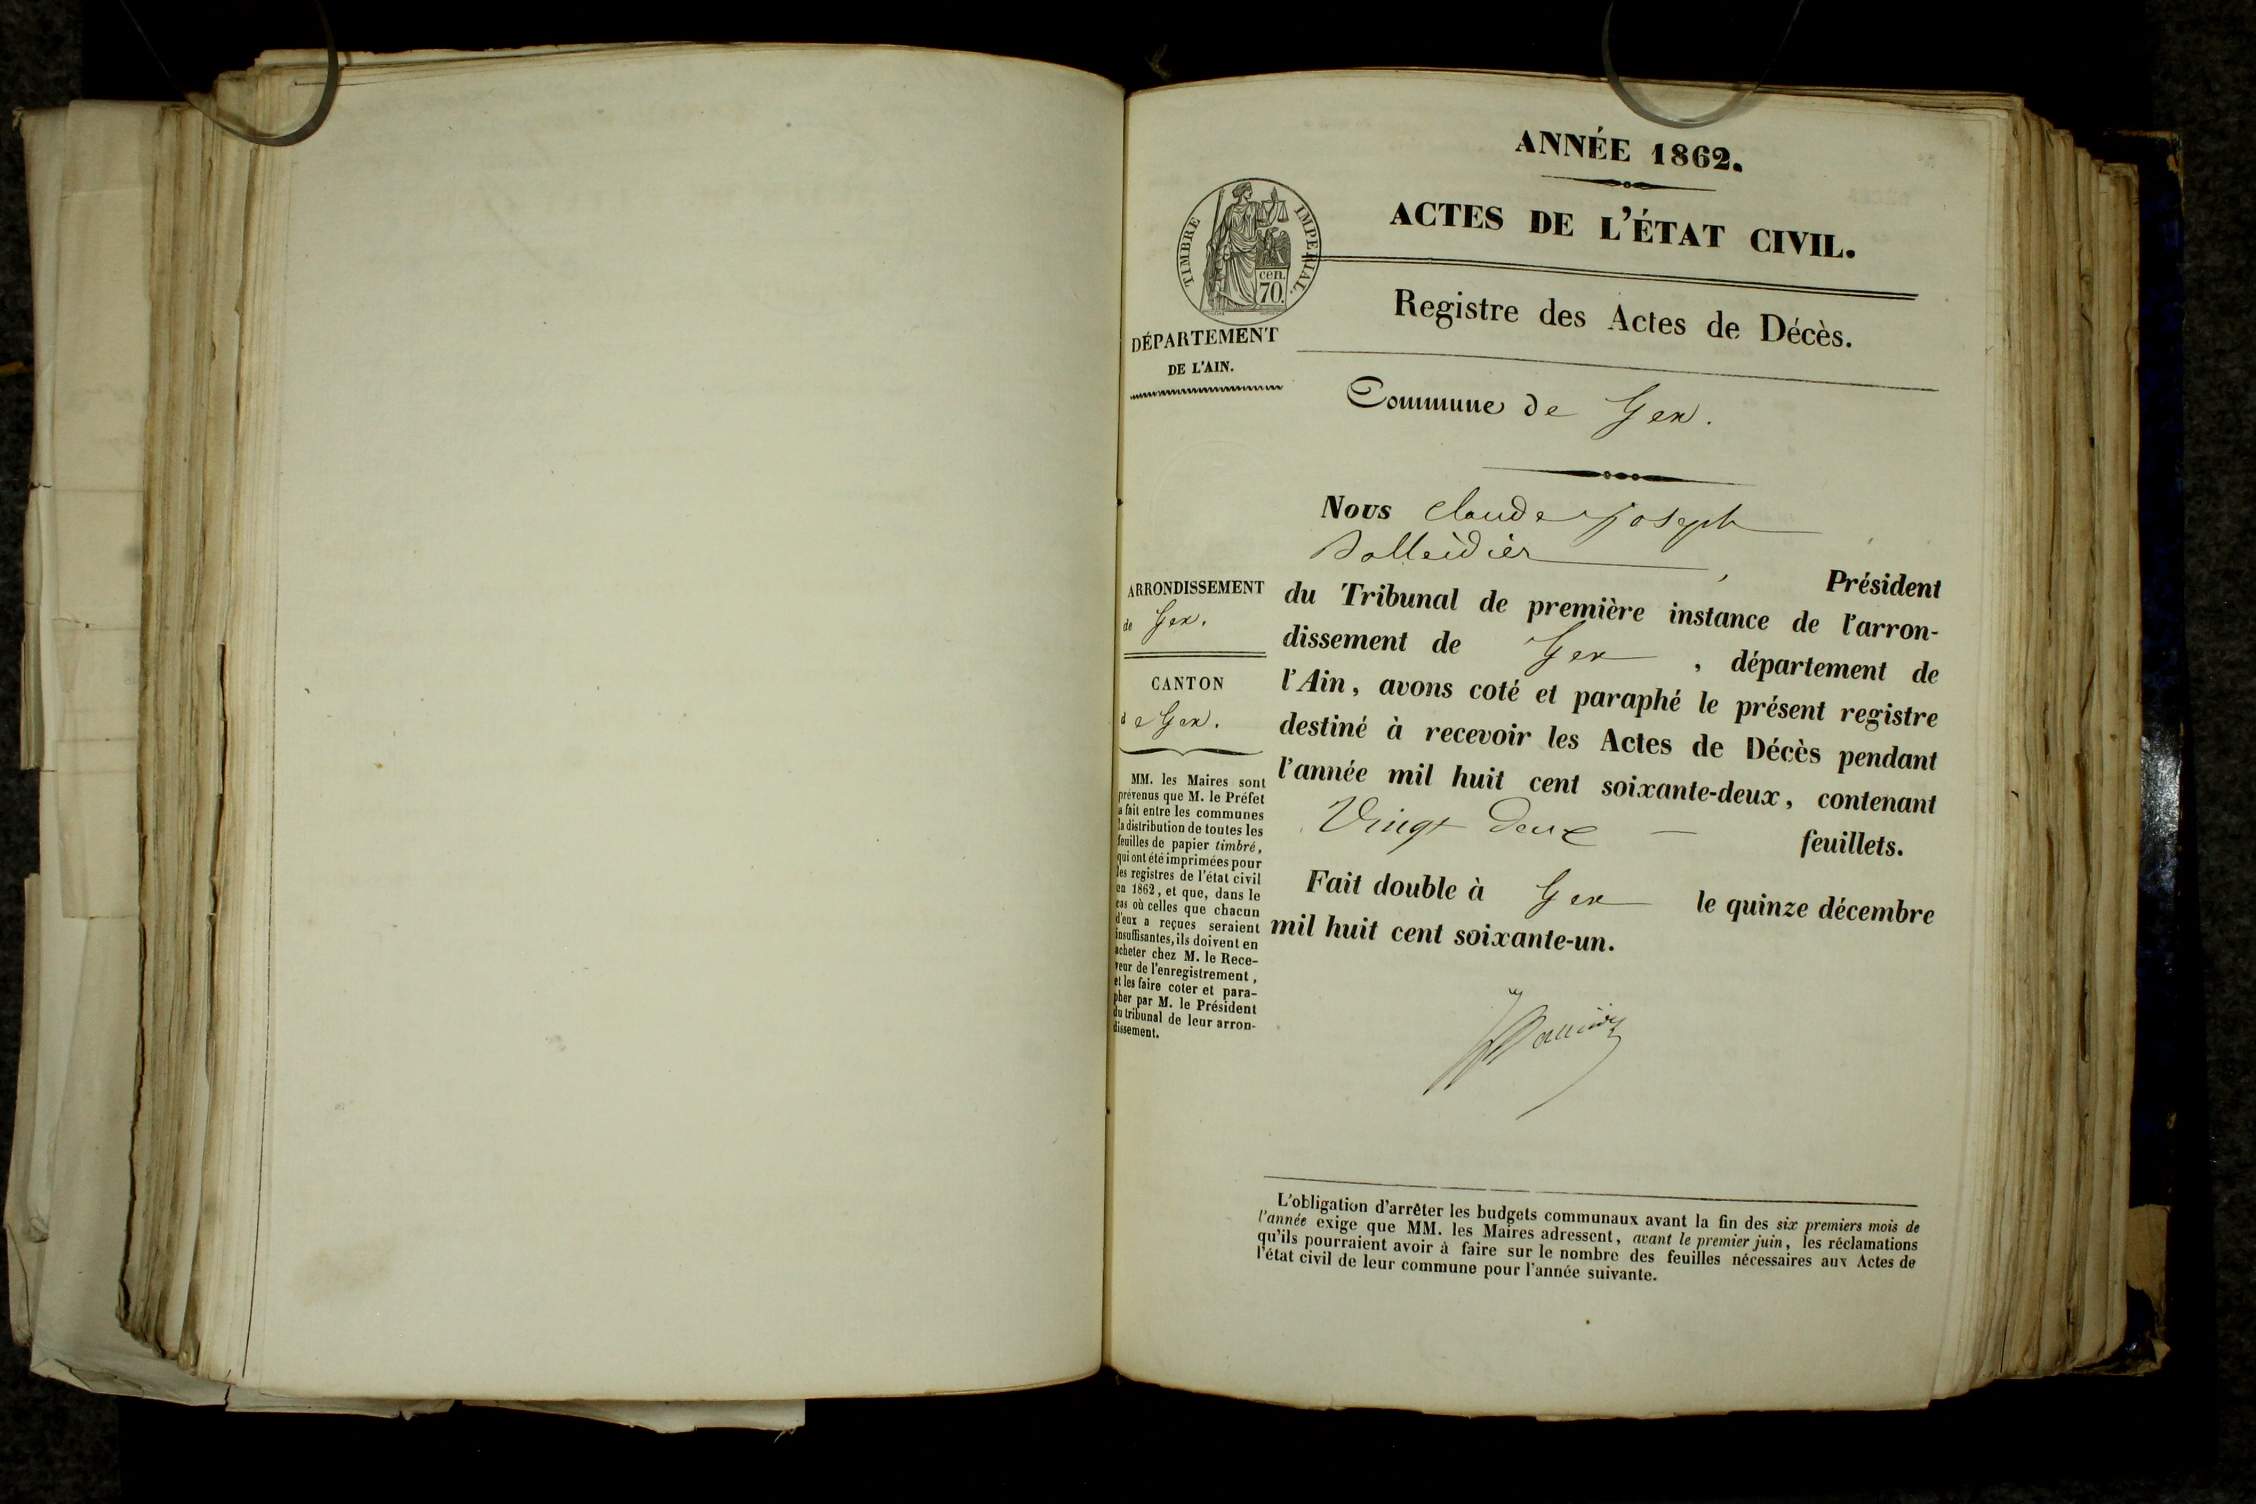 ANNÉE 1862.
ACTES DE L'ÉTAT CIVIL.
TIMBRE IMPERIAL.
cen.
70.
Registre des Actes de Décès.
DÉPARTEMENT
DE L'AIN.
Commune de Gex.
Nous Claude joseph
Balleidier, Président
du Tribunal de première instance de l'arron-
dissement de Gex, département de
l'Ain, avons coté et paraphé le présent registre
destiné à recevoir les Actes de Décès pendant
l'année mil huit cent soixante-deux, contenant
Vingt deux feuillets.
Fait double à Gex le quinze décembre
mil huit cent soixante-un.
ARRONDISSEMENT
de Gex.
CANTON
de Gex.
MM. les Maires sont
prévenus que M. le Préfet
a fait entre les communes
la distribution de toutes les
feuilles de papier timbré,
qui ont été imprimées pour
les registres de l'état civil
en 1862, et que, dans le
cas où celles que chacun
d'eux a reçues seraient
insuffisantes, ils doivent en
acheter chez M. le Rece-
veur de l'enregistrement,
et les faire coter et para-
pher par M. le Président
du tribunal de leur arron-
dissement.
L'obligation d'arrêter les budgets communaux avant la fin des six premiers mois de
l'année exige que MM. les Maires adressent, avant le premier juin, les réclamations
qu'ils pourraient avoir à faire sur le nombre des feuilles nécessaires aux Actes de
l'état civil de leur commune pour l'année suivante.